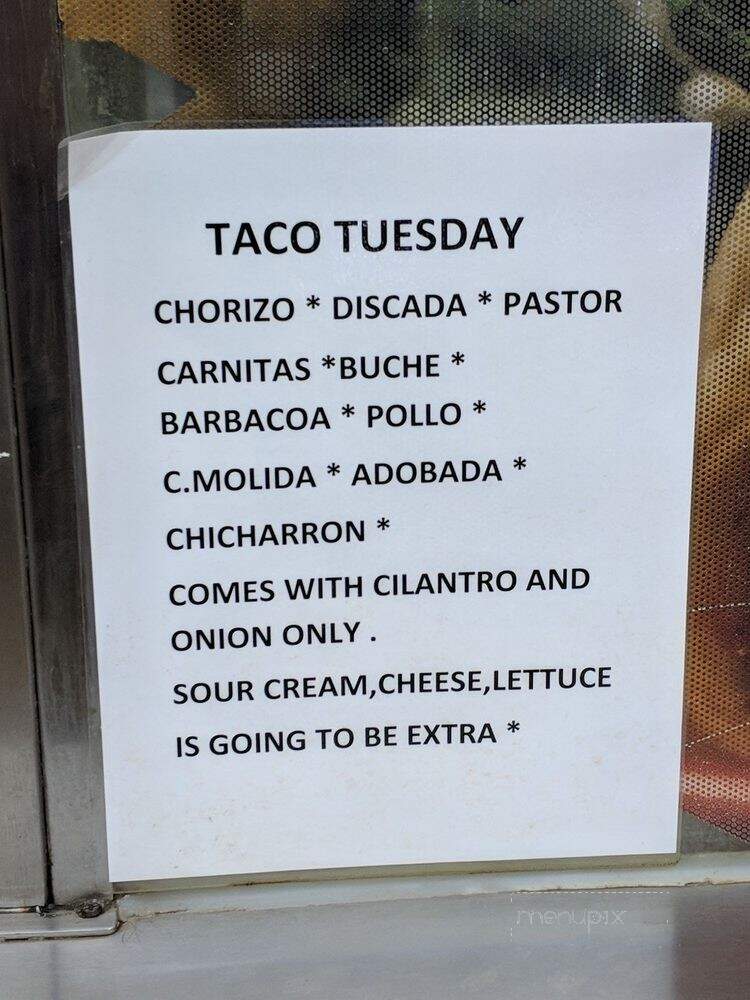 TACO TUESDAY
CHORIZO * DISCADA * PASTOR
CARNITAS *BUCHE *
BARBACOA * POLLO *
C.MOLIDA * ADOBADA *
CHICHARRON *
COMES WITH CILANTRO AND
ONION ONLY .
SOUR CREAM,CHEESE,LETTUCE
IS GOING TO BE EXTRA *
menupix